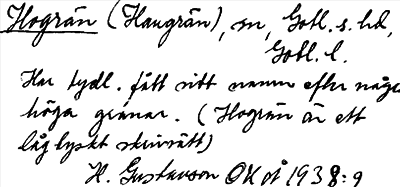 Hogrän (Haugrän), sn, Gotl. s. hd,
Gotl. l.
Har tydl. fått sitt namn efter några
höga granar. (Hogrän är ett
låglyskt skinrätt)
H. Gustavson OKot 1938:9